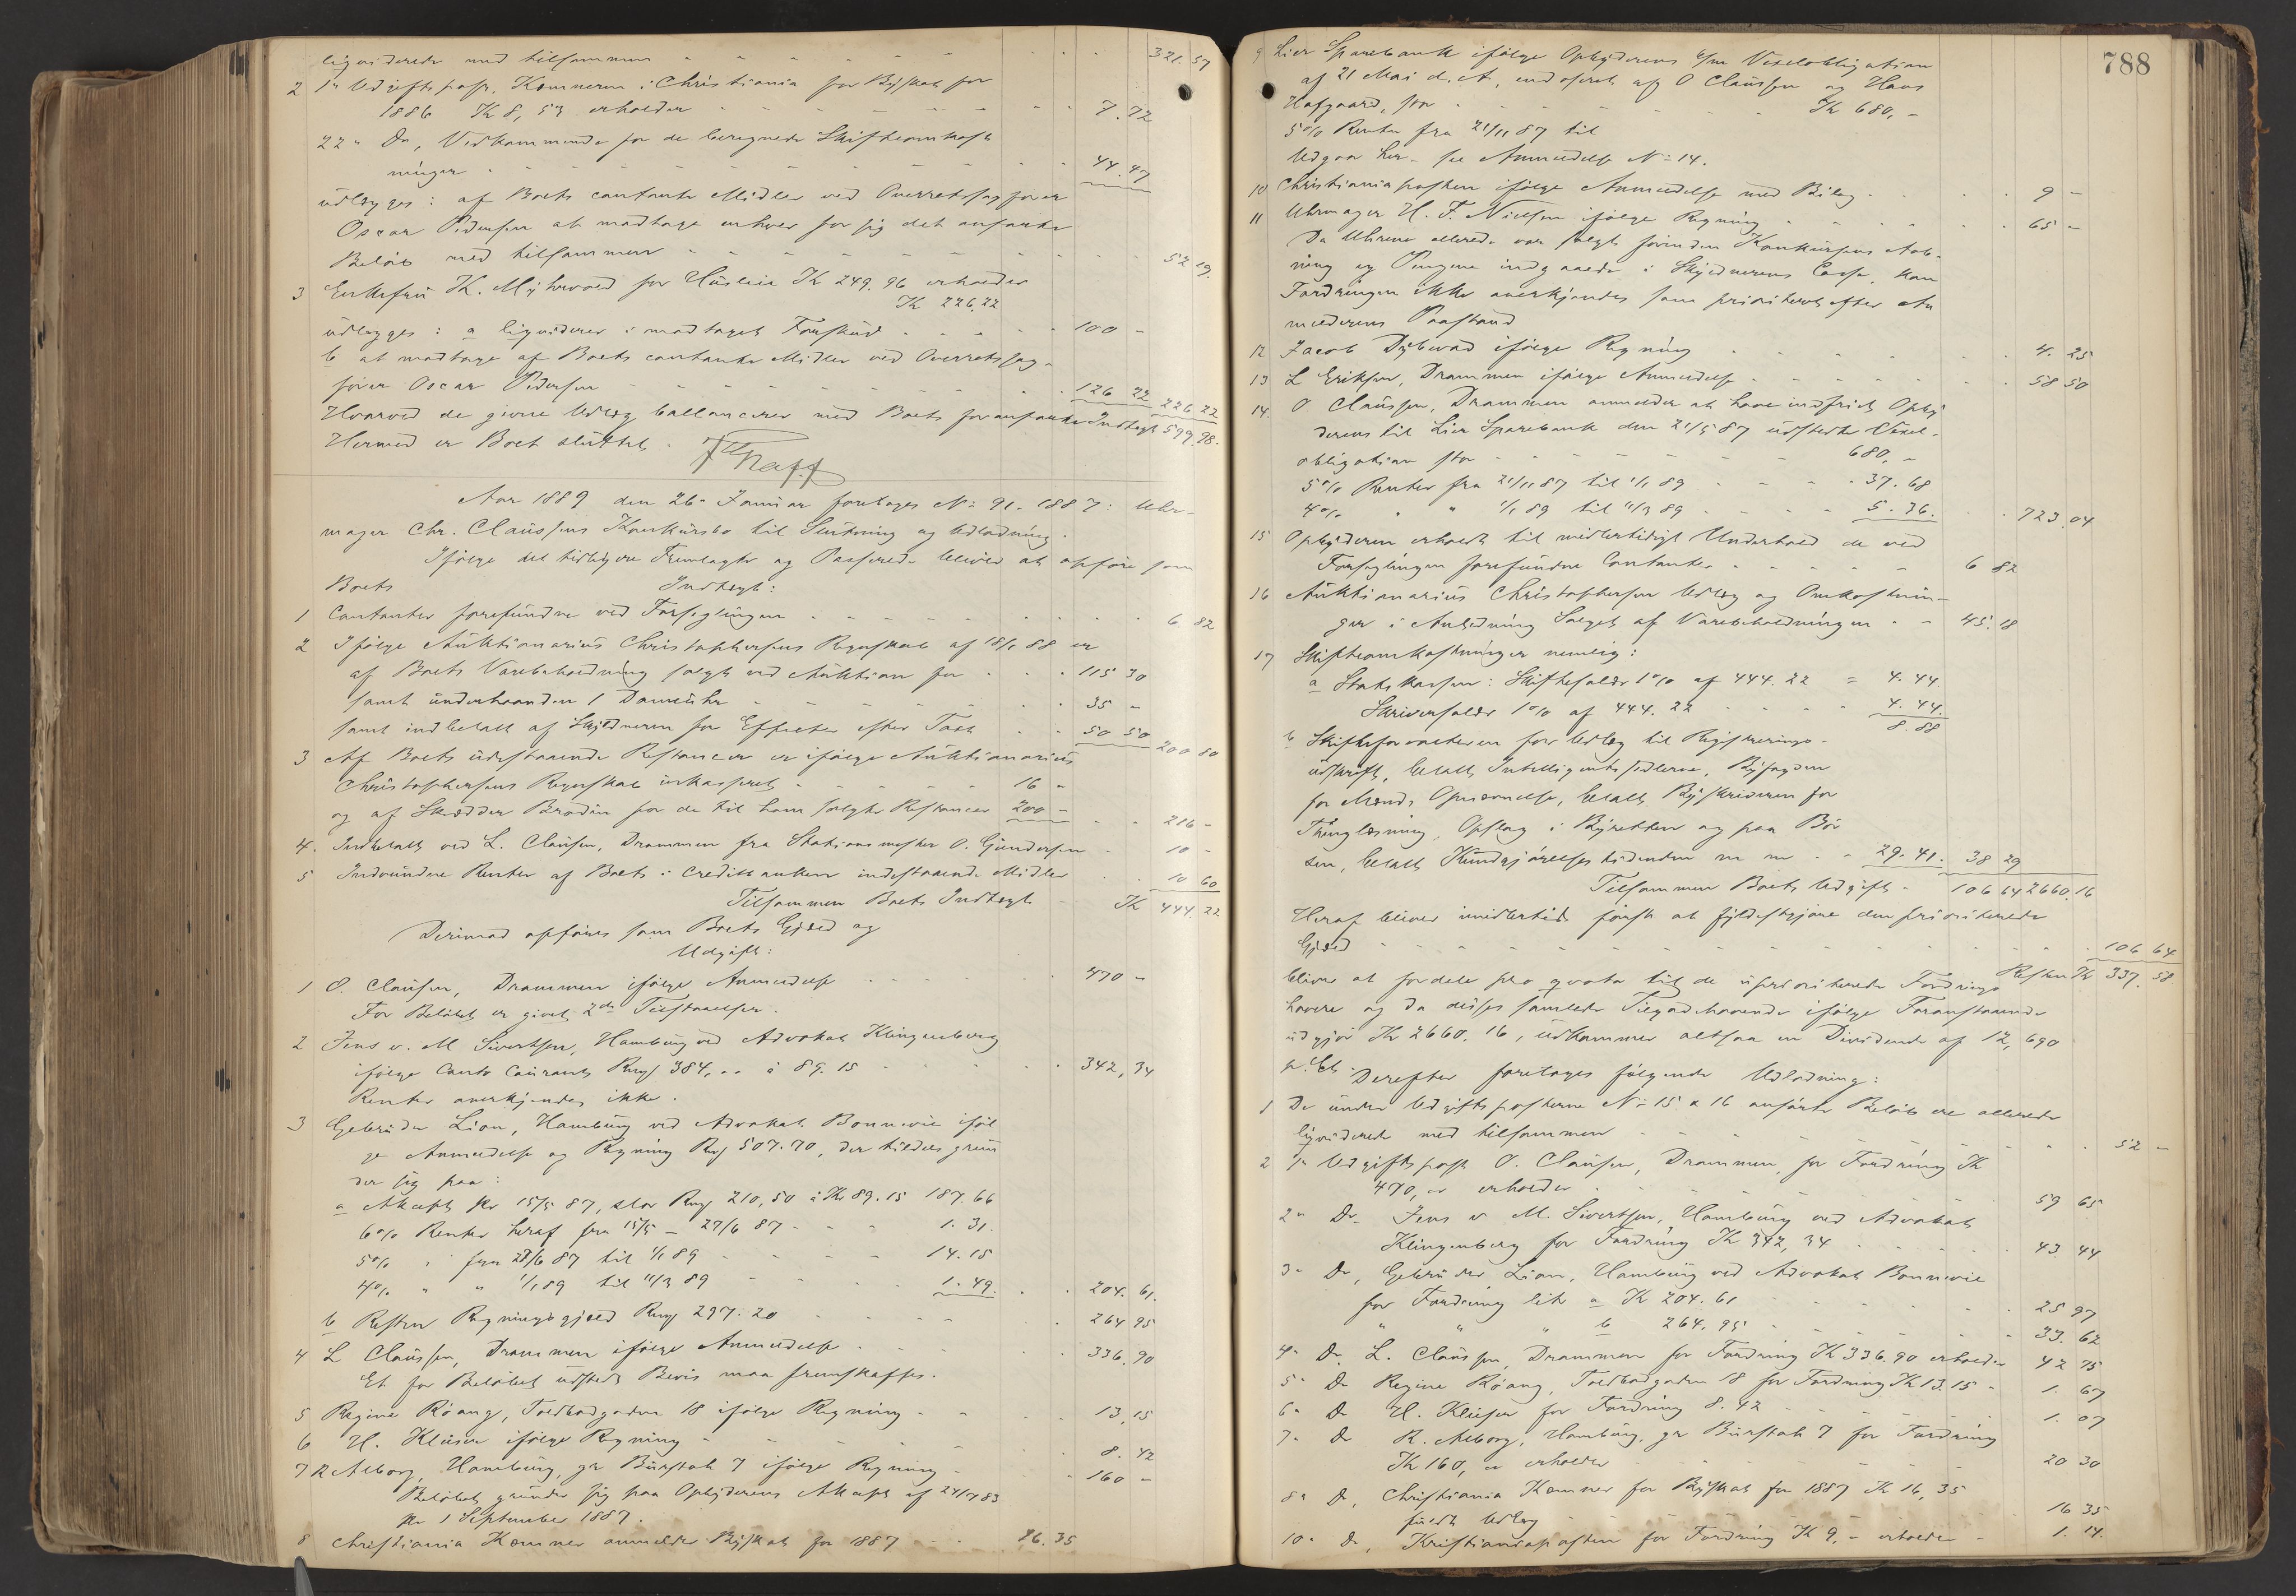 ligviderede med tilsammen 321.57
2 1ste Udgiftspost, Kæmneren i Christiania for Byskat for
1886 Kr 8,53 erholder 7.72
22" Do, Vedkommende for de beregnede Skifteomkost
ninger 44.47
udlægges: af Boets contante Midler ved Overretssagfører
Oscar Pedersen at modtage enhver for sig det anførte
Beløb med tilsammen 52 19.
3 Enkefru K. Myhrvold for Husleie Kr 249.96 erholder
Kr 226,22
udlægges: a ligviderer i modtaget Forskud 100 -
b at modtage af Boets contante Midler ved Overretssag-
fører Oscar Pedersen 126 22 226 22
Hvorved de givne Udlæg ballancerer med Boets foranførte Indtægt 599.98.
Hermed er Boet sluttet.
Aar 1889 den 26de Januar foretoges No 91. 1887: Uhr-
mager Chr. Claussens Konkursbo til Slutning og Udlodning.
Ifølge det tidligere Fremlagte og Passerede bliver at opføre som
Boets Indtægt:
1 Contanter forefundne ved Forseglingen 6.82
2 Ifølge Auktionarius Christophersens Regnskab af 18/1 88 er
af Boets Varebeholdning solgt ved Auktion for 115 30
samt underhaanden 1 Dameuhr 35 -
samt indbetalt af Skyldneren for Effecter efter Taxt 50 50 200 80
3 Af Boets udestaaende Restancer er ifølge Auktionarius
Christophersens Regnskab inkasseret 16 -
og af Skrædder Brodin for de til ham solgte Restancer 200 - 216 -
4. Indbetalt ved L. Clausen, Drammen fra Stationsmester O. Gundersen 10 -
5 Indvundne Renter af Boets i Creditbanken indestaaende Midler 10 60
Tilsammen Boets Indtægt Kr 444.22
Derimod opføres som Boets Gjæld og
Udgift:
1 O. Clausen, Drammen ifølge Anmeldelse 470 -
For Beløbet er givet 2de Tilstaaelser.
2 Jens v. M Sivertsen, Hamburg ved Advokat Klingenberg
ifølge Conto Courant Rmg 384,.. à 89.15 342,34
Renter anerkjendes ikke.
3 Gebrüder Lion, Hamburg ved Advokat Bonnevie iføl
ge Anmeldelse og Regning Rmg 507.70, der tildels grun
der sig paa:
a Akcept pr 15/5 87, stor Rmg 210,50 à Kr 89.15 187.66
6% Renter heraf fra 15/5 - 27/6 87 1.31.
5% " fra 27/6 87 til 1/1 89 14.15
4% " " 1/1 89 til 11/3 89 1.49. 204.61.
b Resten Regningsgjæld Rmg 297.20 264 95
4 L Claussen, Drammen ifølge Anmeldelse 336.90
Et for Beløbet udstedt Bevis maa fremskaffes.
5 Regine Roang, Toldbodgaden 18 ifølge Regning 13,15
6 H. Klüsen ifølge Regning 8.42
7 R Alborg, Hamburg, gr Burstah 7 ifølge Regning 160 -
Beløbet grunder sig paa Opbyderens Akcept af 24/7 83
pr 1 September 1887.
8 Christiania Kæmner anmelder Byskat for 1887 16.35
788
9 Lier Sparebank ifølge Opbyderens Vexelobligation
af 21 Mai d. A., endosseret af O Claussen og Hans
Hofgaard, stor Kr 680,-
5% Renter fra 21/11 87 til
Udgaar her - se Anmeldelse No 14.
10 Christianiaposten ifølge Anmeldelse med Bilag 9 -
11 Uhrmager H. F. Nielsen ifølge Regning 65 -
Da Uhrene allerede var solgt forinden Konkursens Aab-
ning og Pengene indgaaede i Skyldnerens Casse, kan
Fordringen ikke anerkjendes som prioriteret efter An
melderens Paastand
12 Jacob Dybwad ifølge Regning 4.25
13 L Eriksen, Drammen ifølge Anmeldelse 58 50
14. O. Claussen, Drammen anmelder at have indfriet Opby
derens til Lier Sparebank den 21/5 87 udstedte Vexel-
obligation stor 680,-
5% Renter fra 21/11 87 til 1/1 89 37.68
4% " " 1/1 89 til 11/3 89 5.36. 723.04
15 Opbyderen erholdt til midlertidigt Underhold de ved
Forseglingen forefundne Contanter 6 82
16 Auktionarius Christophersen Udlæg og Omkostnin-
ger i Anledning Salget af Varebeholdningen 45.18
17 Skifteomkostninger nemlig:
a Statskassen: Skiftesalær 1% af 444.22 = 4.44.
Skriversalær 1% af 444.22 4.44.
8.88
b Skifteforvalteren for Udlæg til Registrerings-
udskrift, betalt Intelligentssedlerne, Byfogden
for Mænds Opnævnelse, betalt Byskriveren for
Thinglæsning, Opslag i Byretten og paa Bør
sen, betalt Kundgjørelsestidenden m m 29.41. 38 29
Tilsammen Boets Udgift 106 64 2660.16
Heraf bliver imidlertid først at fyldestgjøre den prioriterede
Gjæld 106 64
Resten Kr 337.58
bliver at fordele pro qvota til de uprioriterede Fordrings
havere og da disses samlede Tilgodehavende ifølge Foranstaaende
udgjør Kr 2660.16, udkommer altsaa en Dividende af 12,690
pr. Ct.
Derefter foretoges følgende Udlodning:
1 De under Udgiftsposterne No 15 & 16 anførte Beløb ere allerede
ligviderede med tilsammen 52 -
2 1ste Udgiftspost O. Clausen, Drammen, for Fordring Kr
470,- erholder 59 65
2" Do Jens v M. Sivertsen, Hamburg ved Advokat
Klingenberg for Fordring Kr 342,34 43 44
3" Do, Gebrüder Lion, Hamburg ved Advokat Bonnevie
for Fordring litr a Kr 204.61 25 97
" " " b 264.95 33.62
4" Do L. Claussen, Drammen for Fordring Kr 336.90 erholder 42 75
5" Do Regine Roang, Toldbodgaden 18 for Fordring Kr 13.15 1.67
6" Do H. Klüsen for Fordring 8.42 1.07
7" Do R. Alborg, Hamburg, gr Burstah 7 for Fordring
Kr 160,- erholder 20 30
8" Do, Christiania Kæmner for Byskat for 1887 Kr 16,35
fuldt Udlæg 16 35
10" Do, Kristianiaposten for Fordring Kr 9,- erholder 1.14.